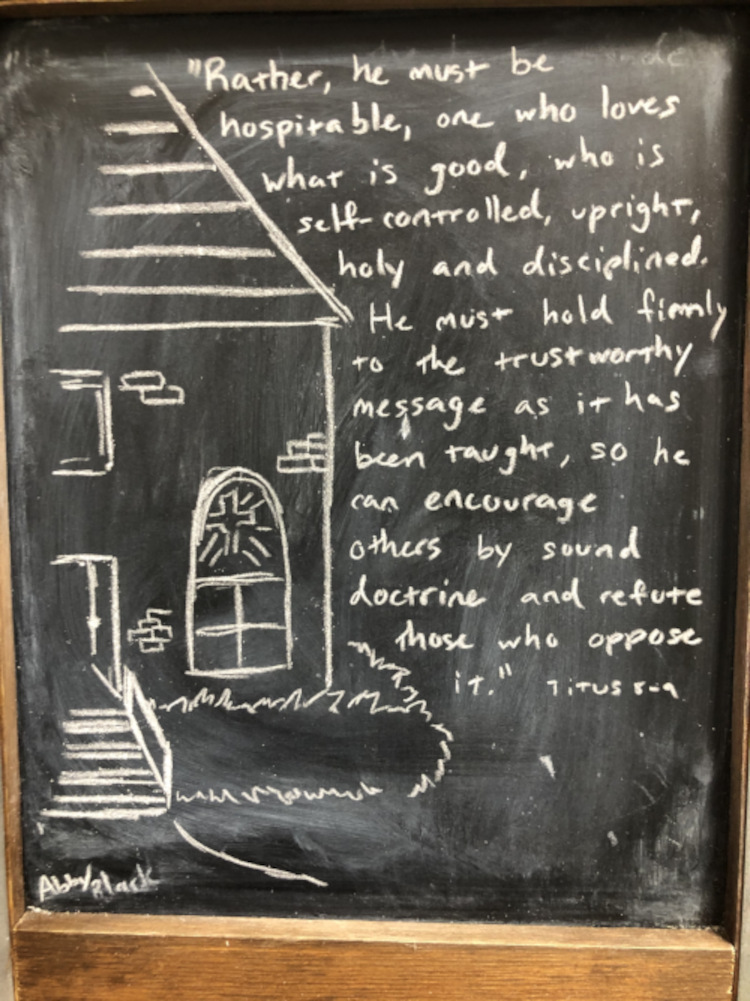 "Rather, he must be
hospitable, one who loves
what is good, who is
self-controlled, upright,
holy and disciplined.
He must hold firmly
to the trustworthy
message as it has
been taught, so he
can encourage
others by sound
doctrine and refute
those who oppose
it." Titus 8-9
Abby Black